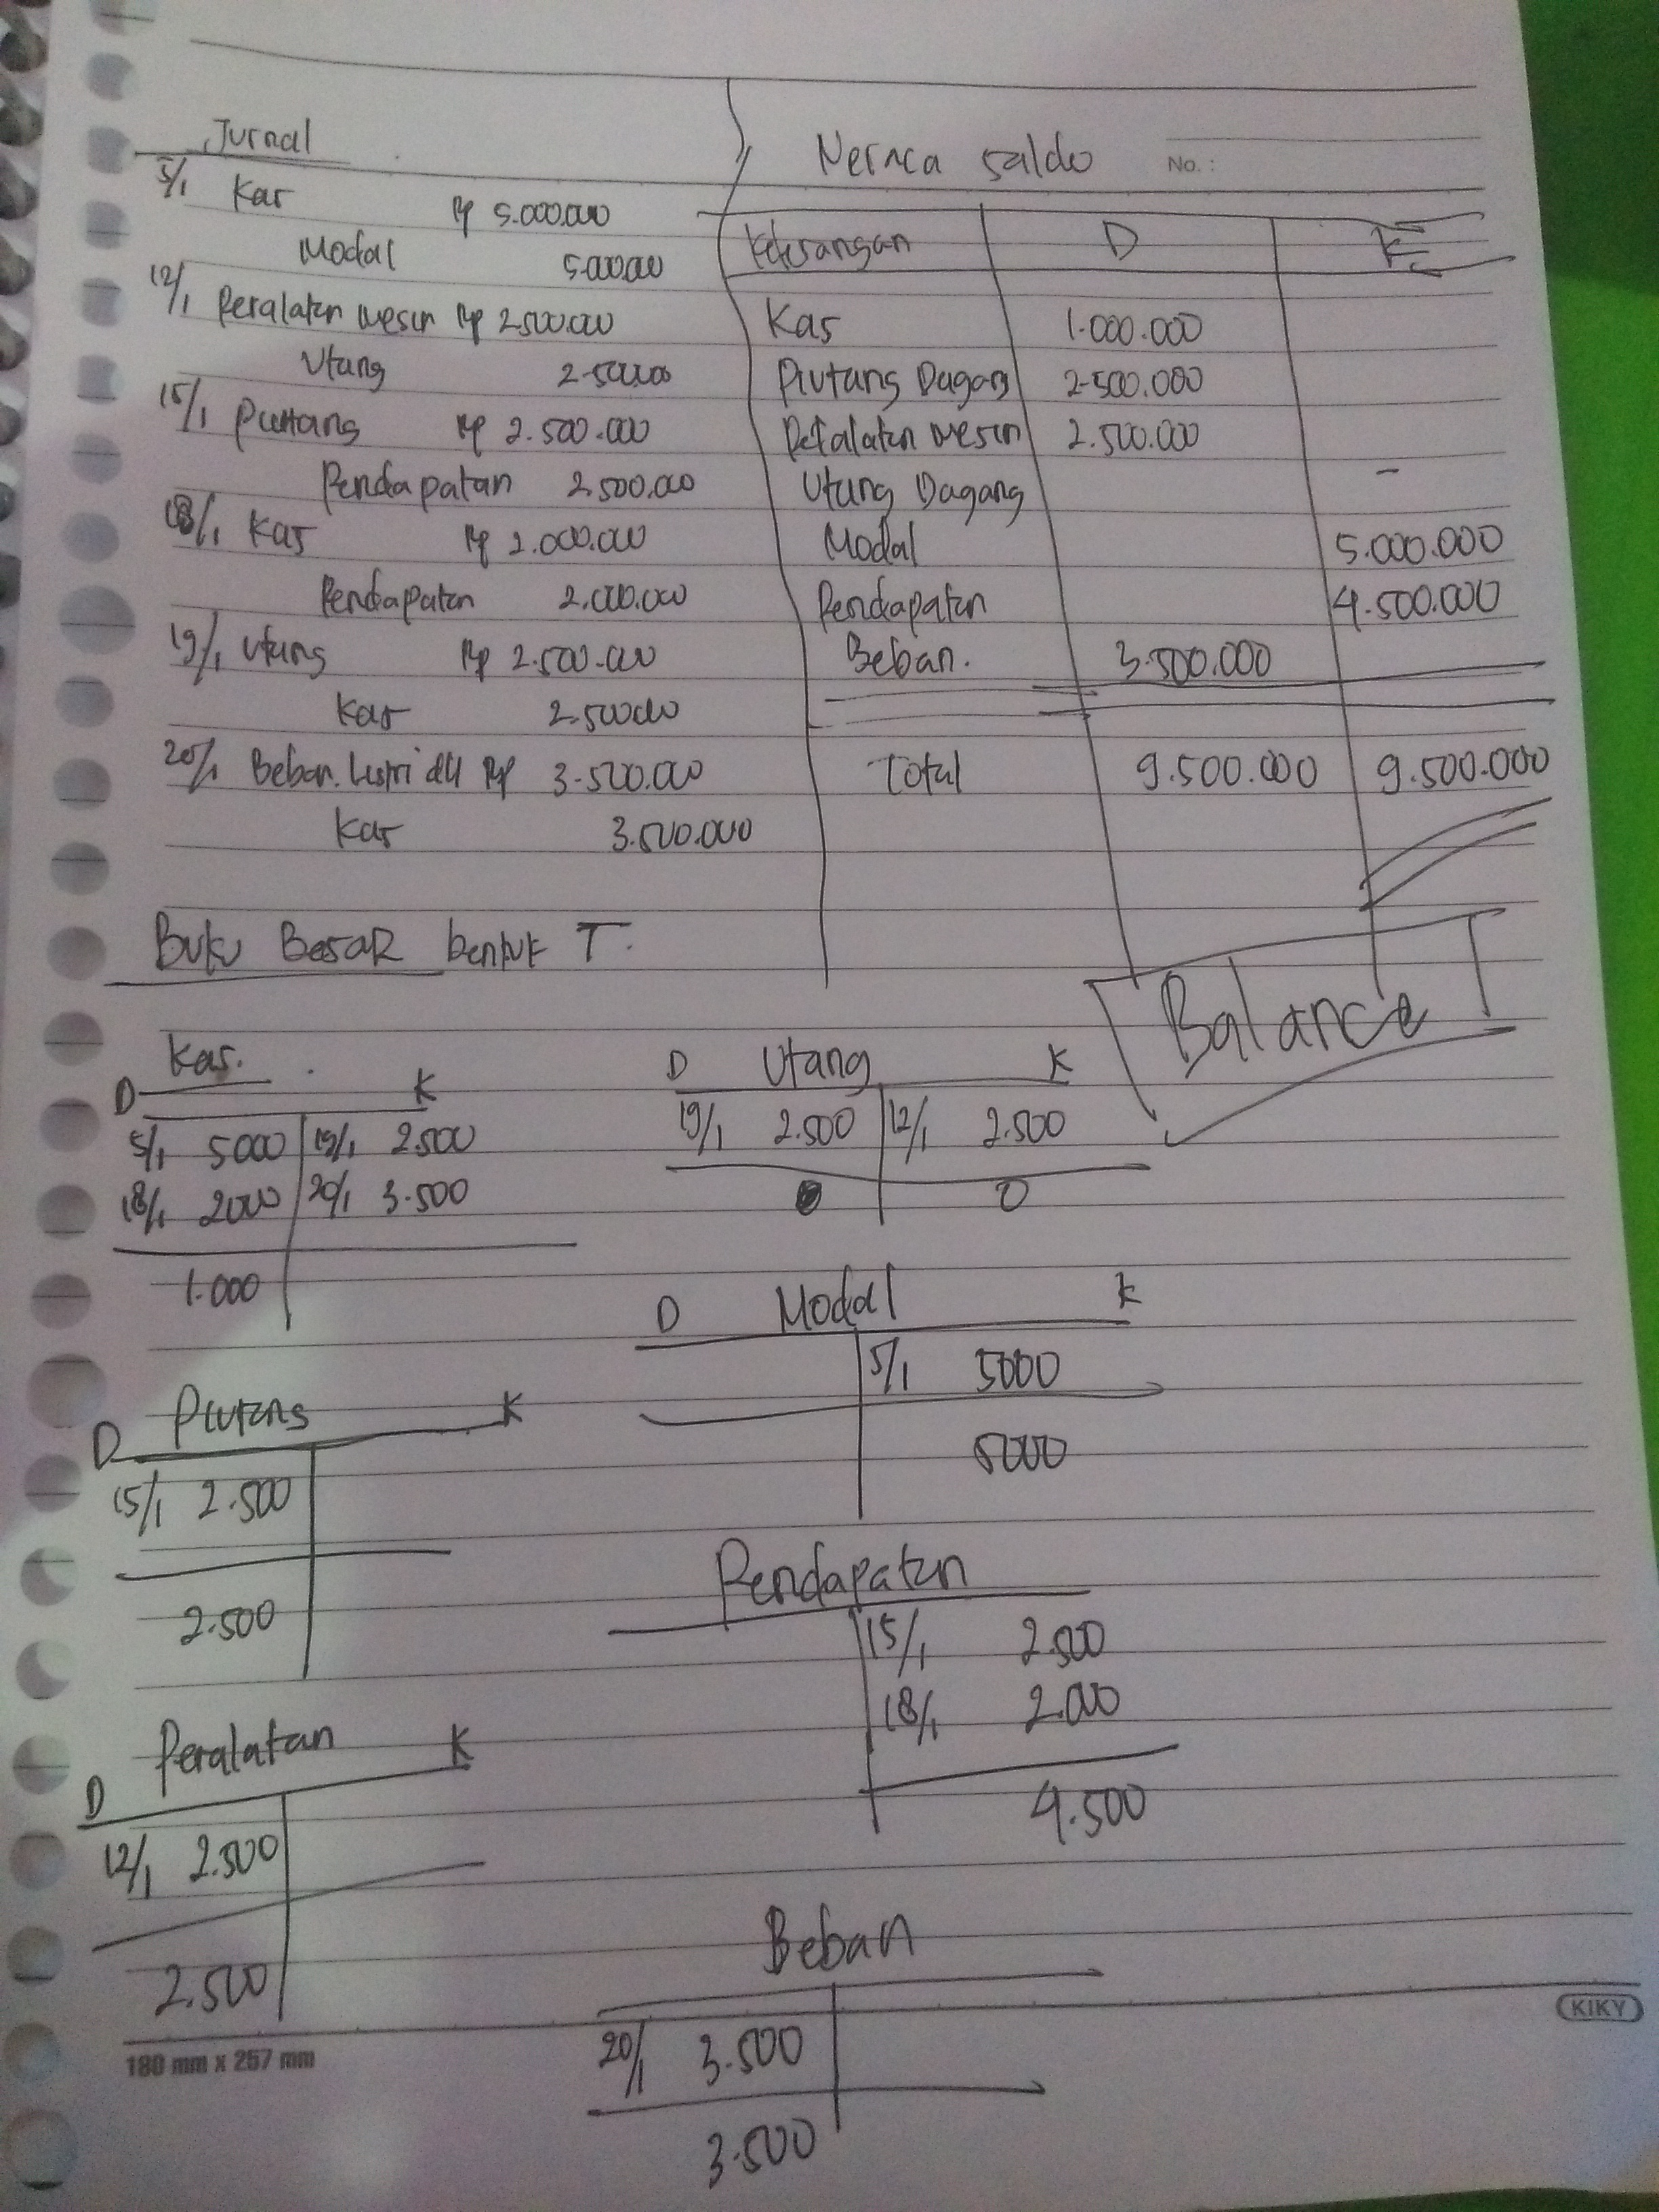 Jurnal
5/1 Kas Rp 5.000.000
Modal 5.000.000
12/1 Peralatan mesin Rp 2.500.000
Utang 2.500.000
15/1 Piutang Rp 2.500.000
Pendapatan 2.500.000
18/1 Kas Rp 2.000.000
Pendapatan 2.000.000
19/1 Utang Rp 2.500.000
Kas 2.500.000
20/1 Beban. Listri dll Rp 3.500.000
Kas 3.500.000
Neraca saldo
No. :
Keterangan D K
Kas 1.000.000
Piutang Dagang 2.500.000
Peralatan mesin 2.500.000
Utang Dagang -
Modal 5.000.000
Pendapatan 4.500.000
Beban. 3.500.000
Total 9.500.000 9.500.000
Balance
Buku Besar bentuk T.
Kas.
D K
5/1 5000 19/1 2.500
18/1 2000 20/1 3.500
1.000
D Utang K
19/1 2.500 12/1 2.500
0
D Modal K
5/1 5000
5000
D Piutang K
15/1 2.500
2.500
Pendapatan
15/1 2.500
18/1 2.000
4.500
D Peralatan K
12/1 2.500
2.500
Beban
20/1 3.500
3.500
KIKY
180 mm x 257 mm